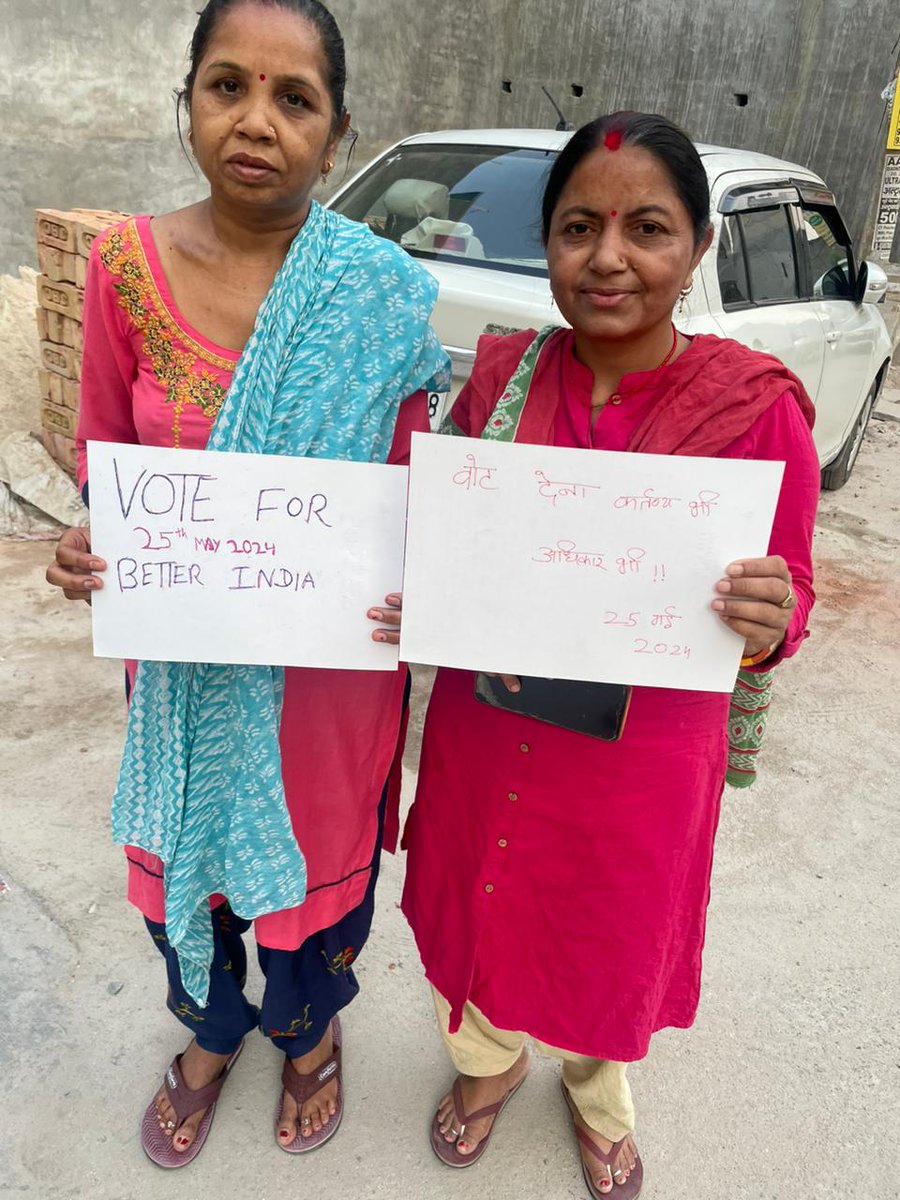 VOTE FOR
25th MAY 2024
BETTER INDIA
वोट देना कर्तव्य भी
अधिकार भी !!
25 मई
2024
8
AA
ULTRA
50